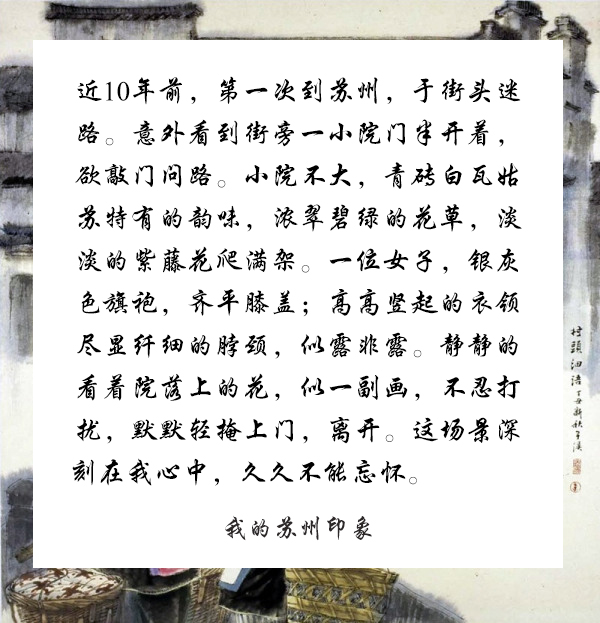 近10年前，第一次到苏州，于街头迷
路。意外看到街旁一小院门半开着，
欲敲门问路。小院不大，青砖白瓦姑
苏特有的韵味，浓翠碧绿的花草，淡
淡的紫藤花爬满架。一位女子，银灰
色旗袍，齐平膝盖；高高竖起的衣领
尽显纤细的脖颈，似露非露。静静的
看着院落上的花，似一副画，不忍打
扰，默默轻掩上门，离开。这场景深
刻在我心中，久久不能忘怀。
我的苏州印象